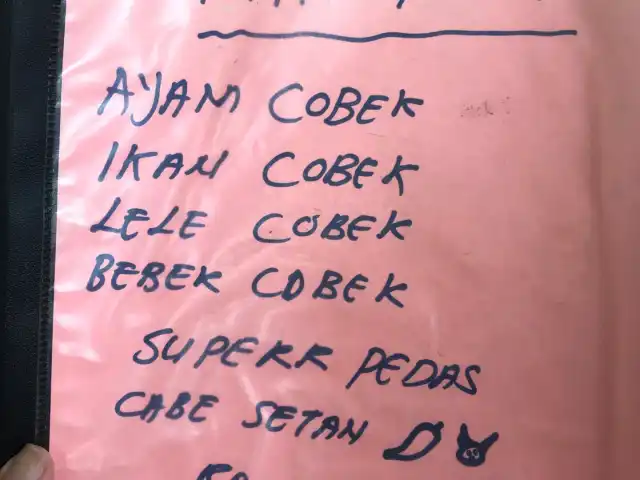 AYAM COBEK
IKAN COBEK
LELE COBEK
BEBEK COBEK
SUPERR PEDAS
CABE SETAN